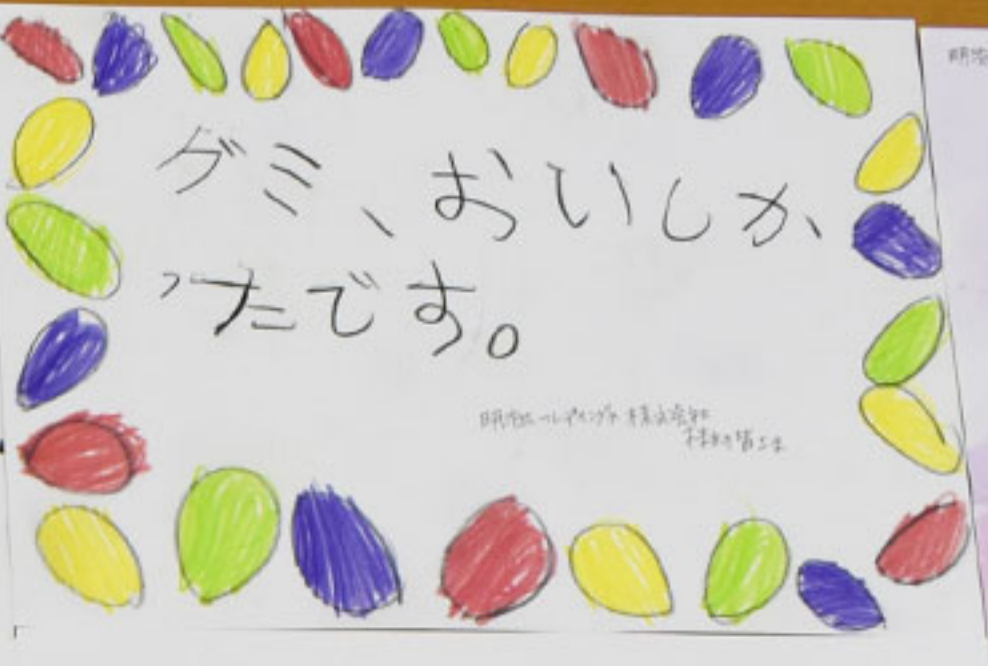 グミ、おいしか
ったです。
明治ホールディングス 株式会社
株主の皆さま
明治